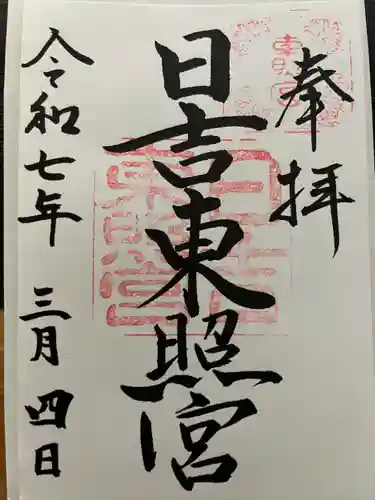 奉拝
日吉東照宮
令和七年 三月 四日